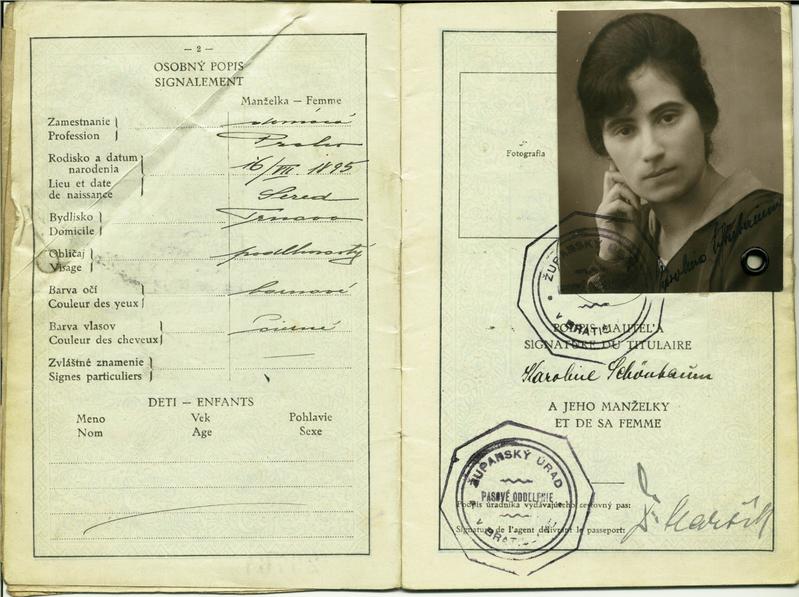 — 2 —
OSOBNÝ POPIS
SIGNALEMENT
Manželka — Femme
Zamestnanie
Profession
Rodisko a datum
narodenia
Lieu et date
de naissance
16/VII. 1895
Sered
Bydlisko
Domicile
Trnava
Obličaj
Visage
podlhovastý
Barva očí
Couleur des yeux
Barva vlasov
Couleur des cheveux
čierné
Zvláštné znamenie
Signes particuliers
DETI — ENFANTS
Meno Vek Pohlavie
Nom Age Sexe
Fotografia
ŽUPANSKÝ ÚRAD
v BRATIS
PODPIS MAJITEĽA
SIGNATURE DU TITULAIRE
Karoline Schönbaum
A JEHO MANŽELKY
ET DE SA FEMME
ŽUPANSKÝ ÚRAD
PASOVÉ ODDELENIE
v BRATIS
Podpis úradníka vydávajúceho cestovný pas:
Signature de l'agent délivrant le passeport: